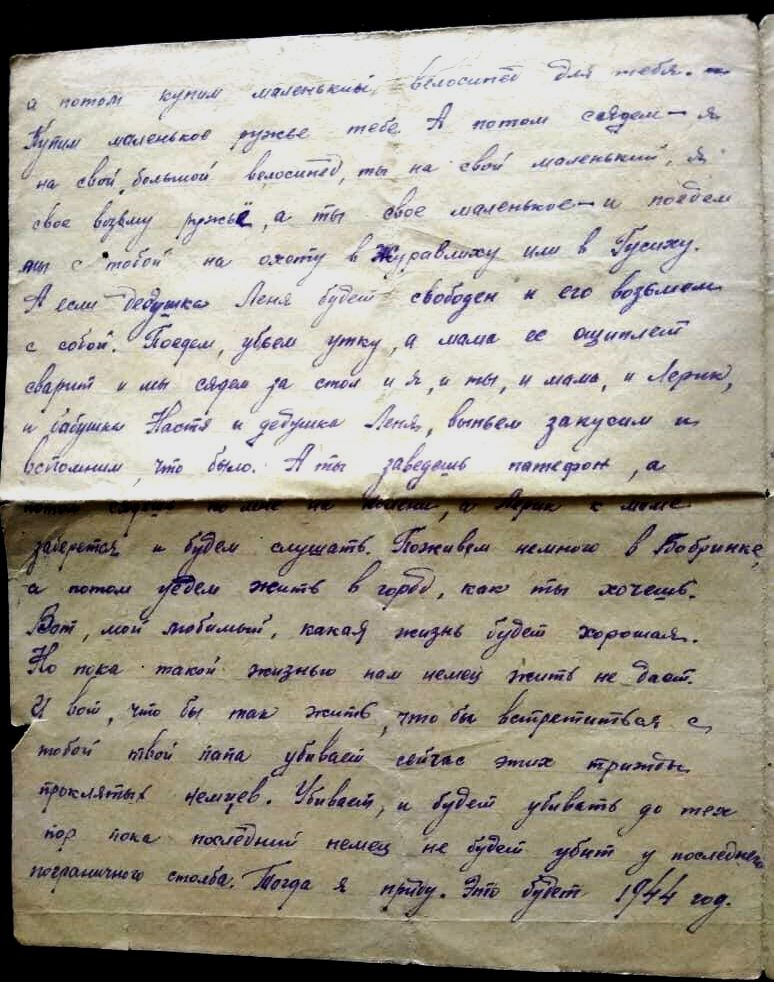 а потом купим маленький велосипед для тебя. –
Купим маленькое ружье тебе. А потом сядем – я
на свой большой велосипед, ты на свой маленький, я
свое возьму ружьё, а ты свое маленькое – и поедем
мы с тобой на охоту в Журавлиху или в Гусиху.
А если дедушка Леня будет свободен и его возьмем
с собой. Поедем, убьем утку, а мама ее ощиплет
сварит и мы сядем за стол и я, и ты, и мама, и Лерик,
и бабушка Настя и дедушка Леня, выпьем закусим и
вспомним, что было. А ты заведешь патефон, а
потом сядешь ко мне на колени, а Лерик к маме
заберется и будем слушать. Поживем немного в Бобринке,
а потом уедем жить в город, как ты хочешь.
Вот, мой любимый, какая жизнь будет хорошая.
Но пока такой жизнью нам немец жить не дает.
И вот, что бы так жить, что бы встретиться с
тобой твой папа убивает сейчас этих трижды
проклятых немцев. Убивает, и будет убивать до тех
пор пока последний немец не будет убит у последнего
пограничного столба. Тогда я приду. Это будет 1944 год.